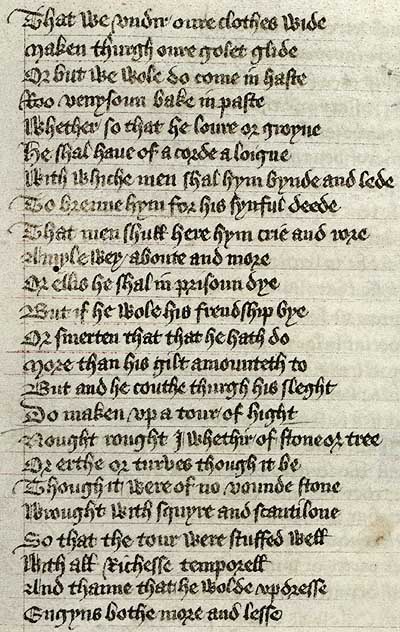 That we vndir oure clothes wide
Maken thurgh oure golet glide
Or but we wole do come in haste
Roo venysoun bake in paste
Whether so that he loure or groyne
He shal haue of a corde a loigne
With whiche men shal hym bynde and lede
To brenne hym for his synful deede
That men shull here hym crie and rore
A myle wey aboute and more
Or ellis he shal in prisoun dye
But if he wole his frendship bye
Or smerten that that he hath do
More than his gilt amounteth to
But and he couthe thurgh his sleght
Do maken vp a tour of hight
Nought rought I whethir of stone or tree
Or erthe or turves though it be
Though it were of no vounde stone
Wrought with squyre and scantilone
So that the tour were stuffed well
With all richesse temporell
And thanne that he wolde vpdresse
Engyns bothe more and lesse